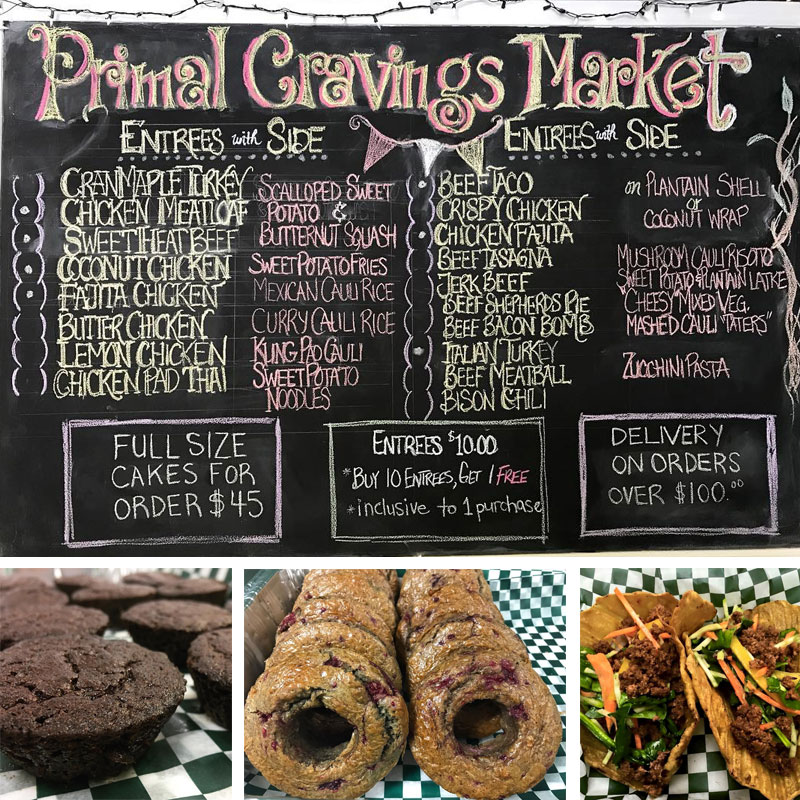 Primal Cravings Market
ENTREES with SIDE
CRANMAPLE TURKEY
CHICKEN MEATLOAF
SWEETHEAT BEEF
COCONUT CHICKEN
FAJITA CHICKEN
BUTTER CHICKEN
LEMON CHICKEN
CHICKEN PAD THAI
SCALLOPED SWEET
POTATO &
BUTTERNUT SQUASH
SWEET POTATO FRIES
MEXICAN CAULI RICE
CURRY CAULI RICE
KUNG PAO CAULI
SWEET POTATO
NOODLES
ENTREES with SIDE
BEEF TACO
CRISPY CHICKEN
CHICKEN FAJITA
BEEF LASAGNA
JERK BEEF
BEEF SHEPHERDS PIE
BEEF BACON BOMB
ITALIAN TURKEY
BEEF MEATBALL
BISON CHILI
on PLANTAIN SHELL
or
COCONUT WRAP
MUSHROOM CAULI RISOTO
SWEET POTATO & PLANTAIN LATKE
"CHEESY" MIXED VEG.
MASHED CAULI "TATERS"
ZUCCHINI PASTA
FULL SIZE
CAKES FOR
ORDER $45
ENTREES $10.00
*BUY 10 ENTREES, GET 1 FREE
*inclusive to 1 purchase
DELIVERY
ON ORDERS
OVER $100.00